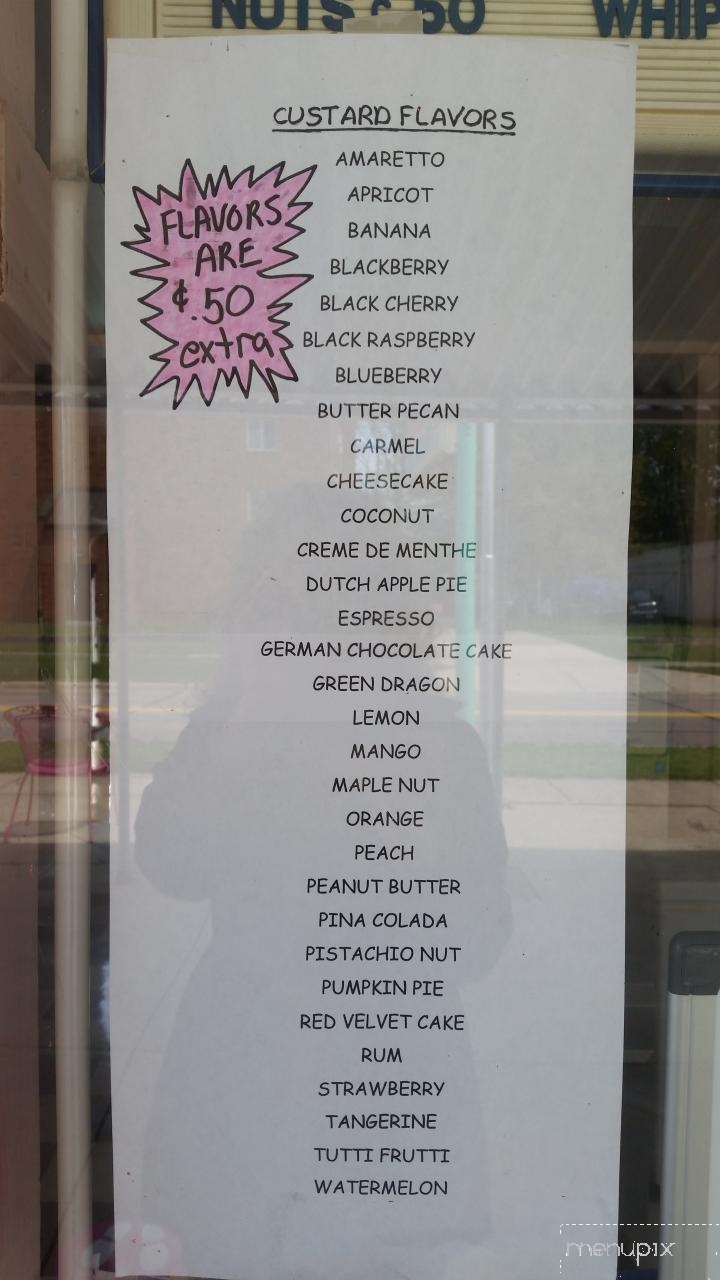 NUTS $.50 WHIP
CUSTARD FLAVORS
FLAVORS
ARE
¢.50
extra
AMARETTO
APRICOT
BANANA
BLACKBERRY
BLACK CHERRY
BLACK RASPBERRY
BLUEBERRY
BUTTER PECAN
CARMEL
CHEESECAKE
COCONUT
CREME DE MENTHE
DUTCH APPLE PIE
ESPRESSO
GERMAN CHOCOLATE CAKE
GREEN DRAGON
LEMON
MANGO
MAPLE NUT
ORANGE
PEACH
PEANUT BUTTER
PINA COLADA
PISTACHIO NUT
PUMPKIN PIE
RED VELVET CAKE
RUM
STRAWBERRY
TANGERINE
TUTTI FRUTTI
WATERMELON
menupix